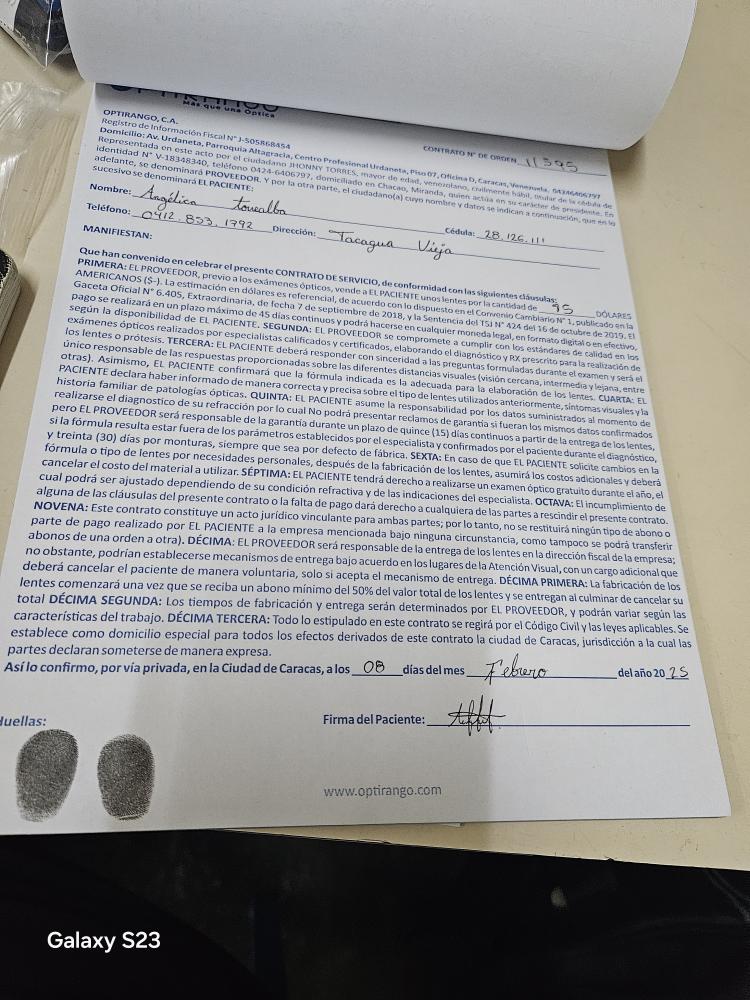 Más que una Optica
OPTIRANGO, C.A.
Registro de Información Fiscal N° J-505868454
CONTRATO N° DE ORDEN 11395
Domicilio: Av. Urdaneta, Parroquia Altagracia, Centro Profesional Urdaneta, Piso 07, Oficina D, Caracas, Venezuela, 04246406797
Representada en este acto por el ciudadano JHONNY TORRES, mayor de edad, venezolano, civilmente hábil, titular de la cédula de
identidad N° V-18348340, teléfono 0424-6406797, domiciliado en Chacao, Miranda, quien actúa en su carácter de presidente. En
adelante, se denominará PROVEEDOR. Y por la otra parte, el ciudadano(a) cuyo nombre y datos se indican a continuación, que en lo
sucesivo se denominará EL PACIENTE:
Nombre: Angélica tovealba
Cédula: 28.126.111
Teléfono: 0412.853.1792 Dirección: Tacagua Vieja
MANIFIESTAN:
Que han convenido en celebrar el presente CONTRATO DE SERVICIO, de conformidad con las siguientes cláusulas:
PRIMERA: EL PROVEEDOR, previo a los exámenes ópticos, vende a EL PACIENTE unos lentes por la cantidad de 95 DÓLARES
AMERICANOS ($-). La estimación en dólares es referencial, de acuerdo con lo dispuesto en el Convenio Cambiario N° 1, publicado en la
Gaceta Oficial N° 6.405, Extraordinaria, de fecha 7 de septiembre de 2018, y la Sentencia del TSJ N° 424 del 16 de octubre de 2019. El
pago se realizará en un plazo máximo de 45 días continuos y podrá hacerse en cualquier moneda legal, en formato digital o en efectivo,
según la disponibilidad de EL PACIENTE. SEGUNDA: EL PROVEEDOR se compromete a cumplir con los estándares de calidad en los
exámenes ópticos realizados por especialistas calificados y certificados, elaborando el diagnóstico y RX prescrito para la realización de
los lentes o prótesis. TERCERA: EL PACIENTE deberá responder con sinceridad a las preguntas formuladas durante el examen y será el
único responsable de las respuestas proporcionadas sobre las diferentes distancias visuales (visión cercana, intermedia y lejana, entre
otras). Asimismo, EL PACIENTE confirmará que la fórmula indicada es la adecuada para la elaboración de los lentes. CUARTA: EL
PACIENTE declara haber informado de manera correcta y precisa sobre el tipo de lentes utilizados anteriormente, síntomas visuales y la
historia familiar de patologías ópticas. QUINTA: EL PACIENTE asume la responsabilidad por los datos suministrados al momento de
realizarse el diagnostico de su refracción por lo cual No podrá presentar reclamos de garantía si fueran los mismos datos confirmados
pero EL PROVEEDOR será responsable de la garantía durante un plazo de quince (15) días continuos a partir de la entrega de los lentes,
si la fórmula resulta estar fuera de los parámetros establecidos por el especialista y confirmados por el paciente durante el diagnóstico,
y treinta (30) días por monturas, siempre que sea por defecto de fábrica. SEXTA: En caso de que EL PACIENTE solicite cambios en la
fórmula o tipo de lentes por necesidades personales, después de la fabricación de los lentes, asumirá los costos adicionales y deberá
cancelar el costo del material a utilizar. SÉPTIMA: EL PACIENTE tendrá derecho a realizarse un examen óptico gratuito durante el año, el
cual podrá ser ajustado dependiendo de su condición refractiva y de las indicaciones del especialista. OCTAVA: El incumplimiento de
alguna de las cláusulas del presente contrato o la falta de pago dará derecho a cualquiera de las partes a rescindir el presente contrato.
NOVENA: Este contrato constituye un acto jurídico vinculante para ambas partes; por lo tanto, no se restituirá ningún tipo de abono o
parte de pago realizado por EL PACIENTE a la empresa mencionada bajo ninguna circunstancia, como tampoco se podrá transferir
abonos de una orden a otra). DÉCIMA: EL PROVEEDOR será responsable de la entrega de los lentes en la dirección fiscal de la empresa;
no obstante, podrían establecerse mecanismos de entrega bajo acuerdo en los lugares de la Atención Visual, con un cargo adicional que
deberá cancelar el paciente de manera voluntaria, solo si acepta el mecanismo de entrega. DÉCIMA PRIMERA: La fabricación de los
lentes comenzará una vez que se reciba un abono mínimo del 50% del valor total de los lentes y se entregan al culminar de cancelar su
total DÉCIMA SEGUNDA: Los tiempos de fabricación y entrega serán determinados por EL PROVEEDOR, y podrán variar según las
características del trabajo. DÉCIMA TERCERA: Todo lo estipulado en este contrato se regirá por el Código Civil y las leyes aplicables. Se
establece como domicilio especial para todos los efectos derivados de este contrato la ciudad de Caracas, jurisdicción a la cual las
partes declaran someterse de manera expresa.
Así lo confirmo, por vía privada, en la Ciudad de Caracas, a los 08 días del mes Febrero del año 2025
Huellas:
Firma del Paciente:
www.optirango.com
Galaxy S23